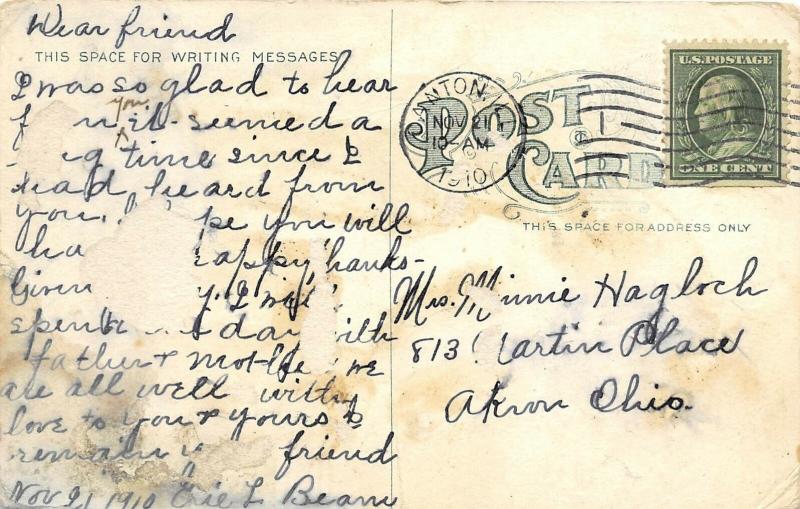 Dear friend
THIS SPACE FOR WRITING MESSAGES
I was so glad to hear
you
it seemed a
time since I
had heard from
you. you will
appy thanks-
Given
spen day with
father & mother we
are all well with
love to you & yours
remain friend
Nov 21 1910 L Beam
U.S. POSTAGE
ONE CENT
ANTON
NOV 21
10-AM
1910
POST CARD
THIS SPACE FOR ADDRESS ONLY
Mrs. Minnie Hagloch
813 artin Place
Akron Ohio.